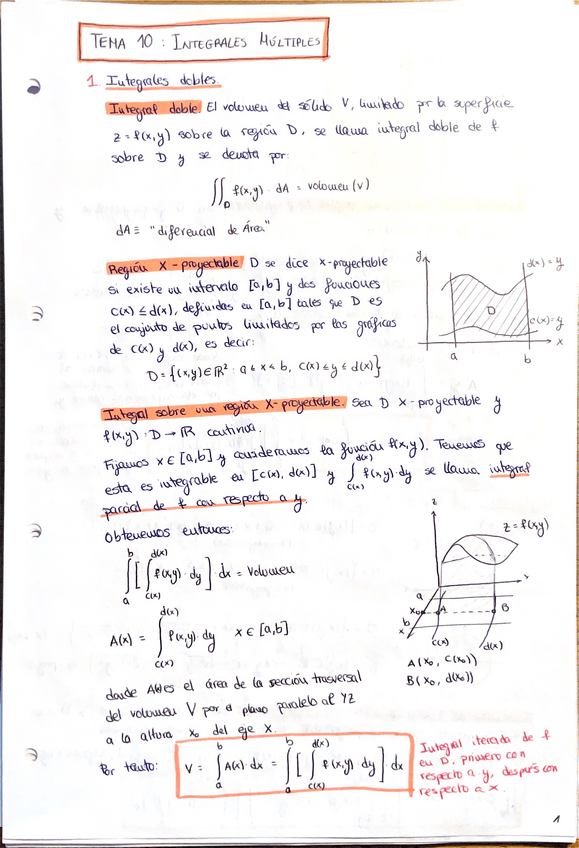 TEMA 10 : INTEGRALES MÚLTIPLES
1 Integrales dobles.
Integral doble. El volumen del sólido V, limitado por la superficie
z = f(x,y) sobre la región D, se llama integral doble de f
sobre D y se denota por:
∬_D f(x,y) · dA = volumen (v)
dA ≡ "diferencial de Área"
Región X-proyectable D se dice x-proyectable
si existe un intervalo [a,b] y dos funciones
c(x) ≤ d(x), definidas en [a,b] tales que D es
el conjunto de puntos limitados por las gráficas
de c(x) y d(x), es decir:
D = {(x,y) ∈ ℝ² : a ≤ x ≤ b, c(x) ≤ y ≤ d(x)}
y
d(x) = y
D
c(x) = y
x
a
b
Integral sobre una región X-proyectable. Sea D X-proyectable y
f(x,y) : D → ℝ continua.
Fijamos x ∈ [a,b] y consideramos la función f(x,y). Tenemos que
esta es integrable en [c(x), d(x)] y ∫_{c(x)}^{d(x)} f(x,y) · dy se llama integral
parcial de f con respecto a y.
Obtenemos entonces:
∫_a^b [ ∫_{c(x)}^{d(x)} f(x,y) · dy ] dx = Volumen
A(x) = ∫_{c(x)}^{d(x)} f(x,y) · dy x ∈ [a,b]
donde A(x) es el área de la sección trasversal
del volumen V por el plano paralelo al YZ
a la altura x₀ del eje X.
z
z = f(x,y)
y
a
x₀
A
B
b
x
c(x)
d(x)
A (x₀, c(x₀))
B (x₀, d(x₀))
Por tanto: V = ∫_a^b A(x) · dx = ∫_a^b [ ∫_{c(x)}^{d(x)} f(x,y) dy ] · dx
Integral iterada de f
en D, primero con
respecto a y, después con
respecto a x.
1